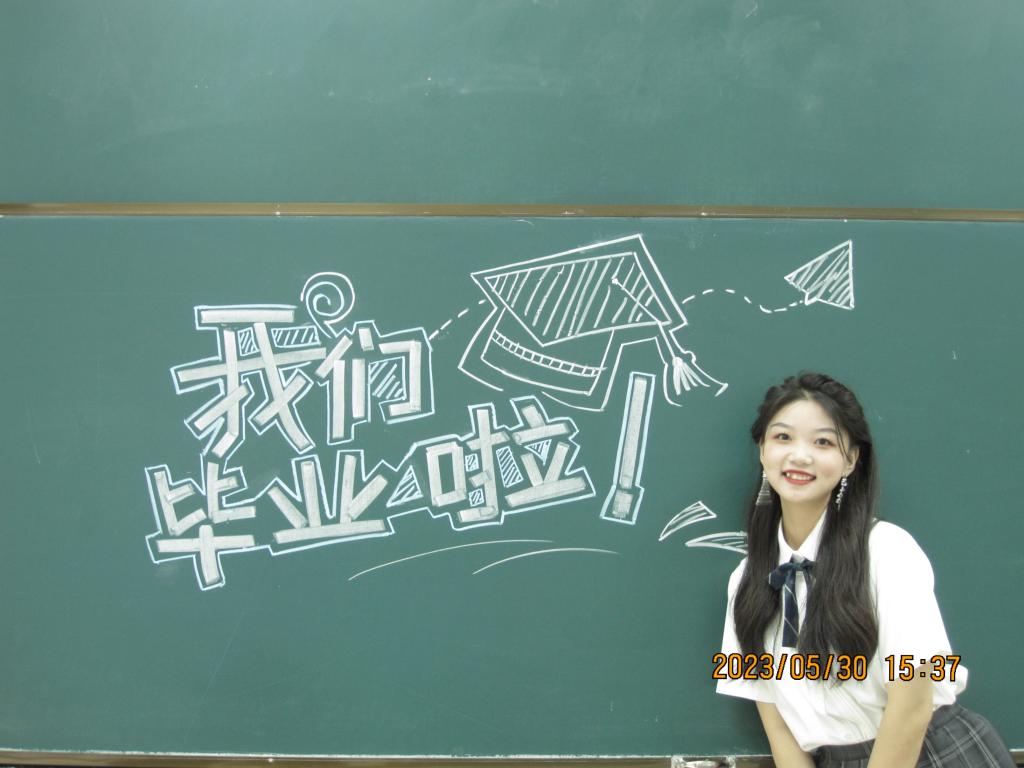 我们
毕业啦!
2023/05/30 15:37